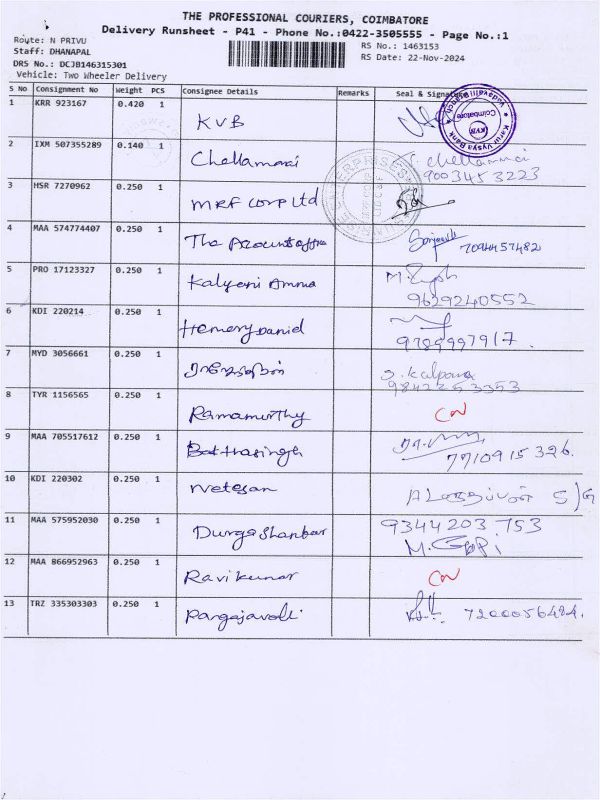 THE PROFESSIONAL COURIERS, COIMBATORE
Delivery Runsheet - P41 - Phone No.:0422-3505555 - Page No.:1
Route: N PRIVU
RS No.: 1463153
Staff: DHANAPAL
RS Date: 22-Nov-2024
DRS No.: DCJB146315301
Vehicle: Two Wheeler Delivery
S No Consignment No Weight PCS Consignee Details Remarks Seal &
1 KRR 923167 0.420 1 KVB
Karur Vysya Bank
Coimbatore
KVB
2 IXM 507355289 0.140 1 S. Chellammai
9003453223
3 HSR 7270962 0.250 1 MRF Corp Ltd
ENTERPRISES
4 MAA 574774407 0.250 1 The
5 PRO 17123327 0.250 1 Kalyani Amma
9629240552
6 KDI 220214 0.250 1 Daniel
9789997917.
7 MYD 3056661 0.250 1 S. Kalpana
9842253353
8 TYR 1156565 0.250 1 Ramamurthy
9 MAA 705517612 0.250 1
7710915326.
10 KDI 220302 0.250 1 Netesan
11 MAA 575952030 0.250 1 Durga Shankar 9344203753
M. Gopi
12 MAA 866952963 0.250 1 Ravikumar
13 TRZ 335303303 0.250 1 7200056484.